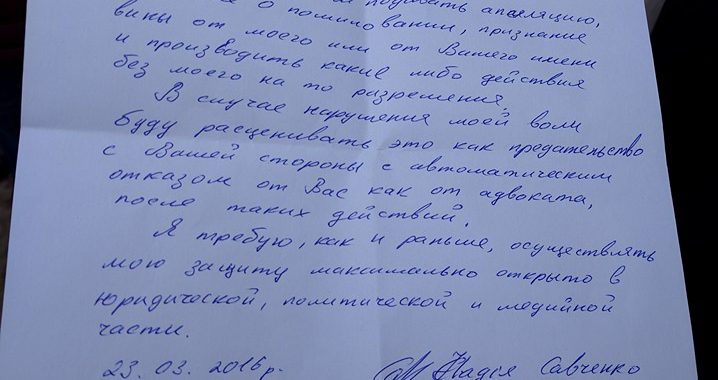 подавать апелляцию,
о помиловании, признание
вины от моего или от Вашего имени
и производить какие либо действия
без моего на то разрешения.
В случае нарушения моей воли
буду расценивать это как предательство
с Вашей стороны с автоматическим
отказом от Вас как от адвоката,
после таких действий.
Я требую, как и раньше, осуществлять
мою защиту максимально открыто в
юридической, политической и медийной
части.
23. 03. 2016 г. Надія Савченко